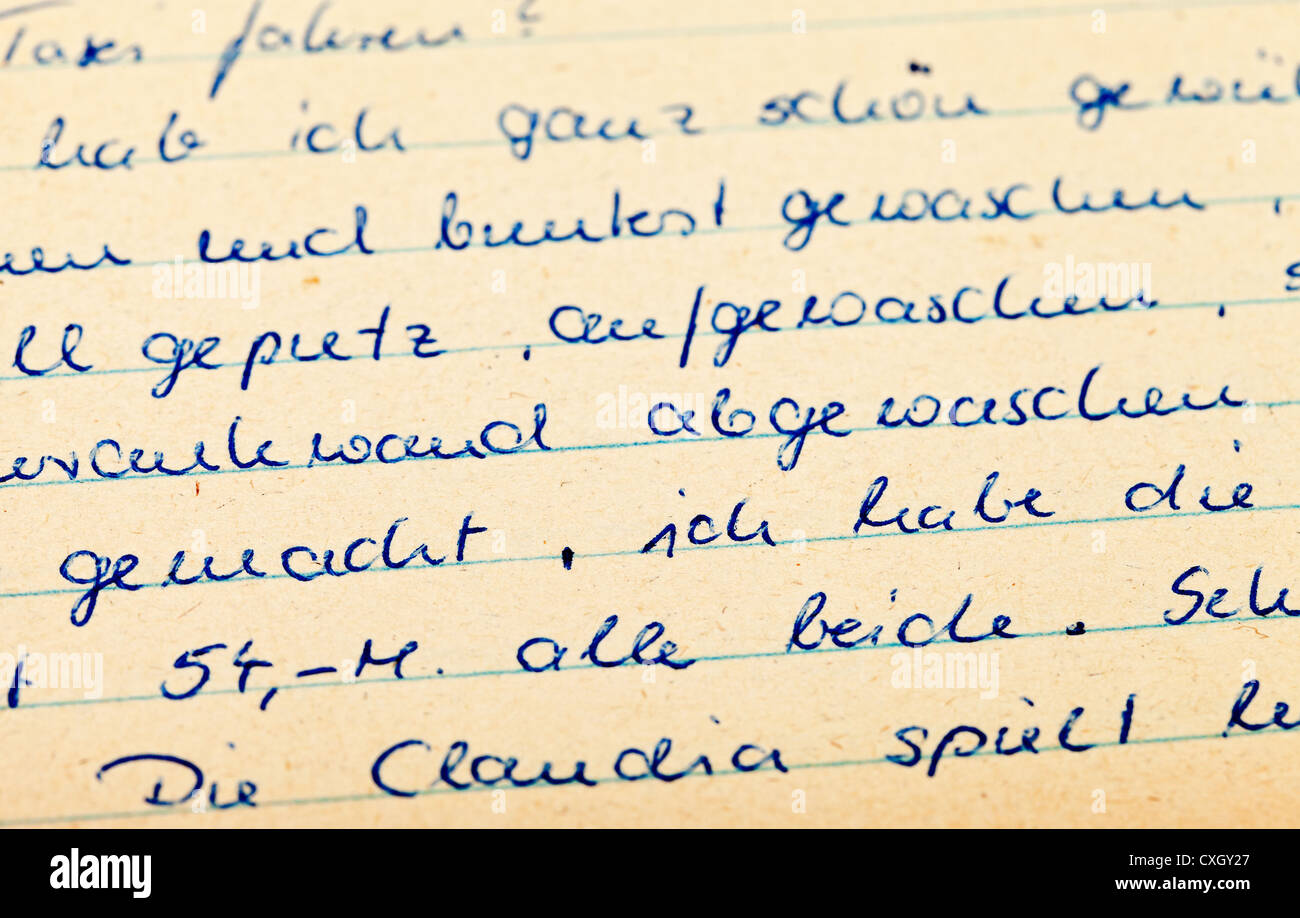 Taxi fahren?
hab ich ganz schön gewüh
nen und buntest gewaschen,
ll geputz, aufgewaschen, s
hrankwand abgewaschen
gemacht, ich habe die
54,-M. alle beide. Sch
Die Claudia spielt
alamy
Image ID: CXGY27
www.alamy.com